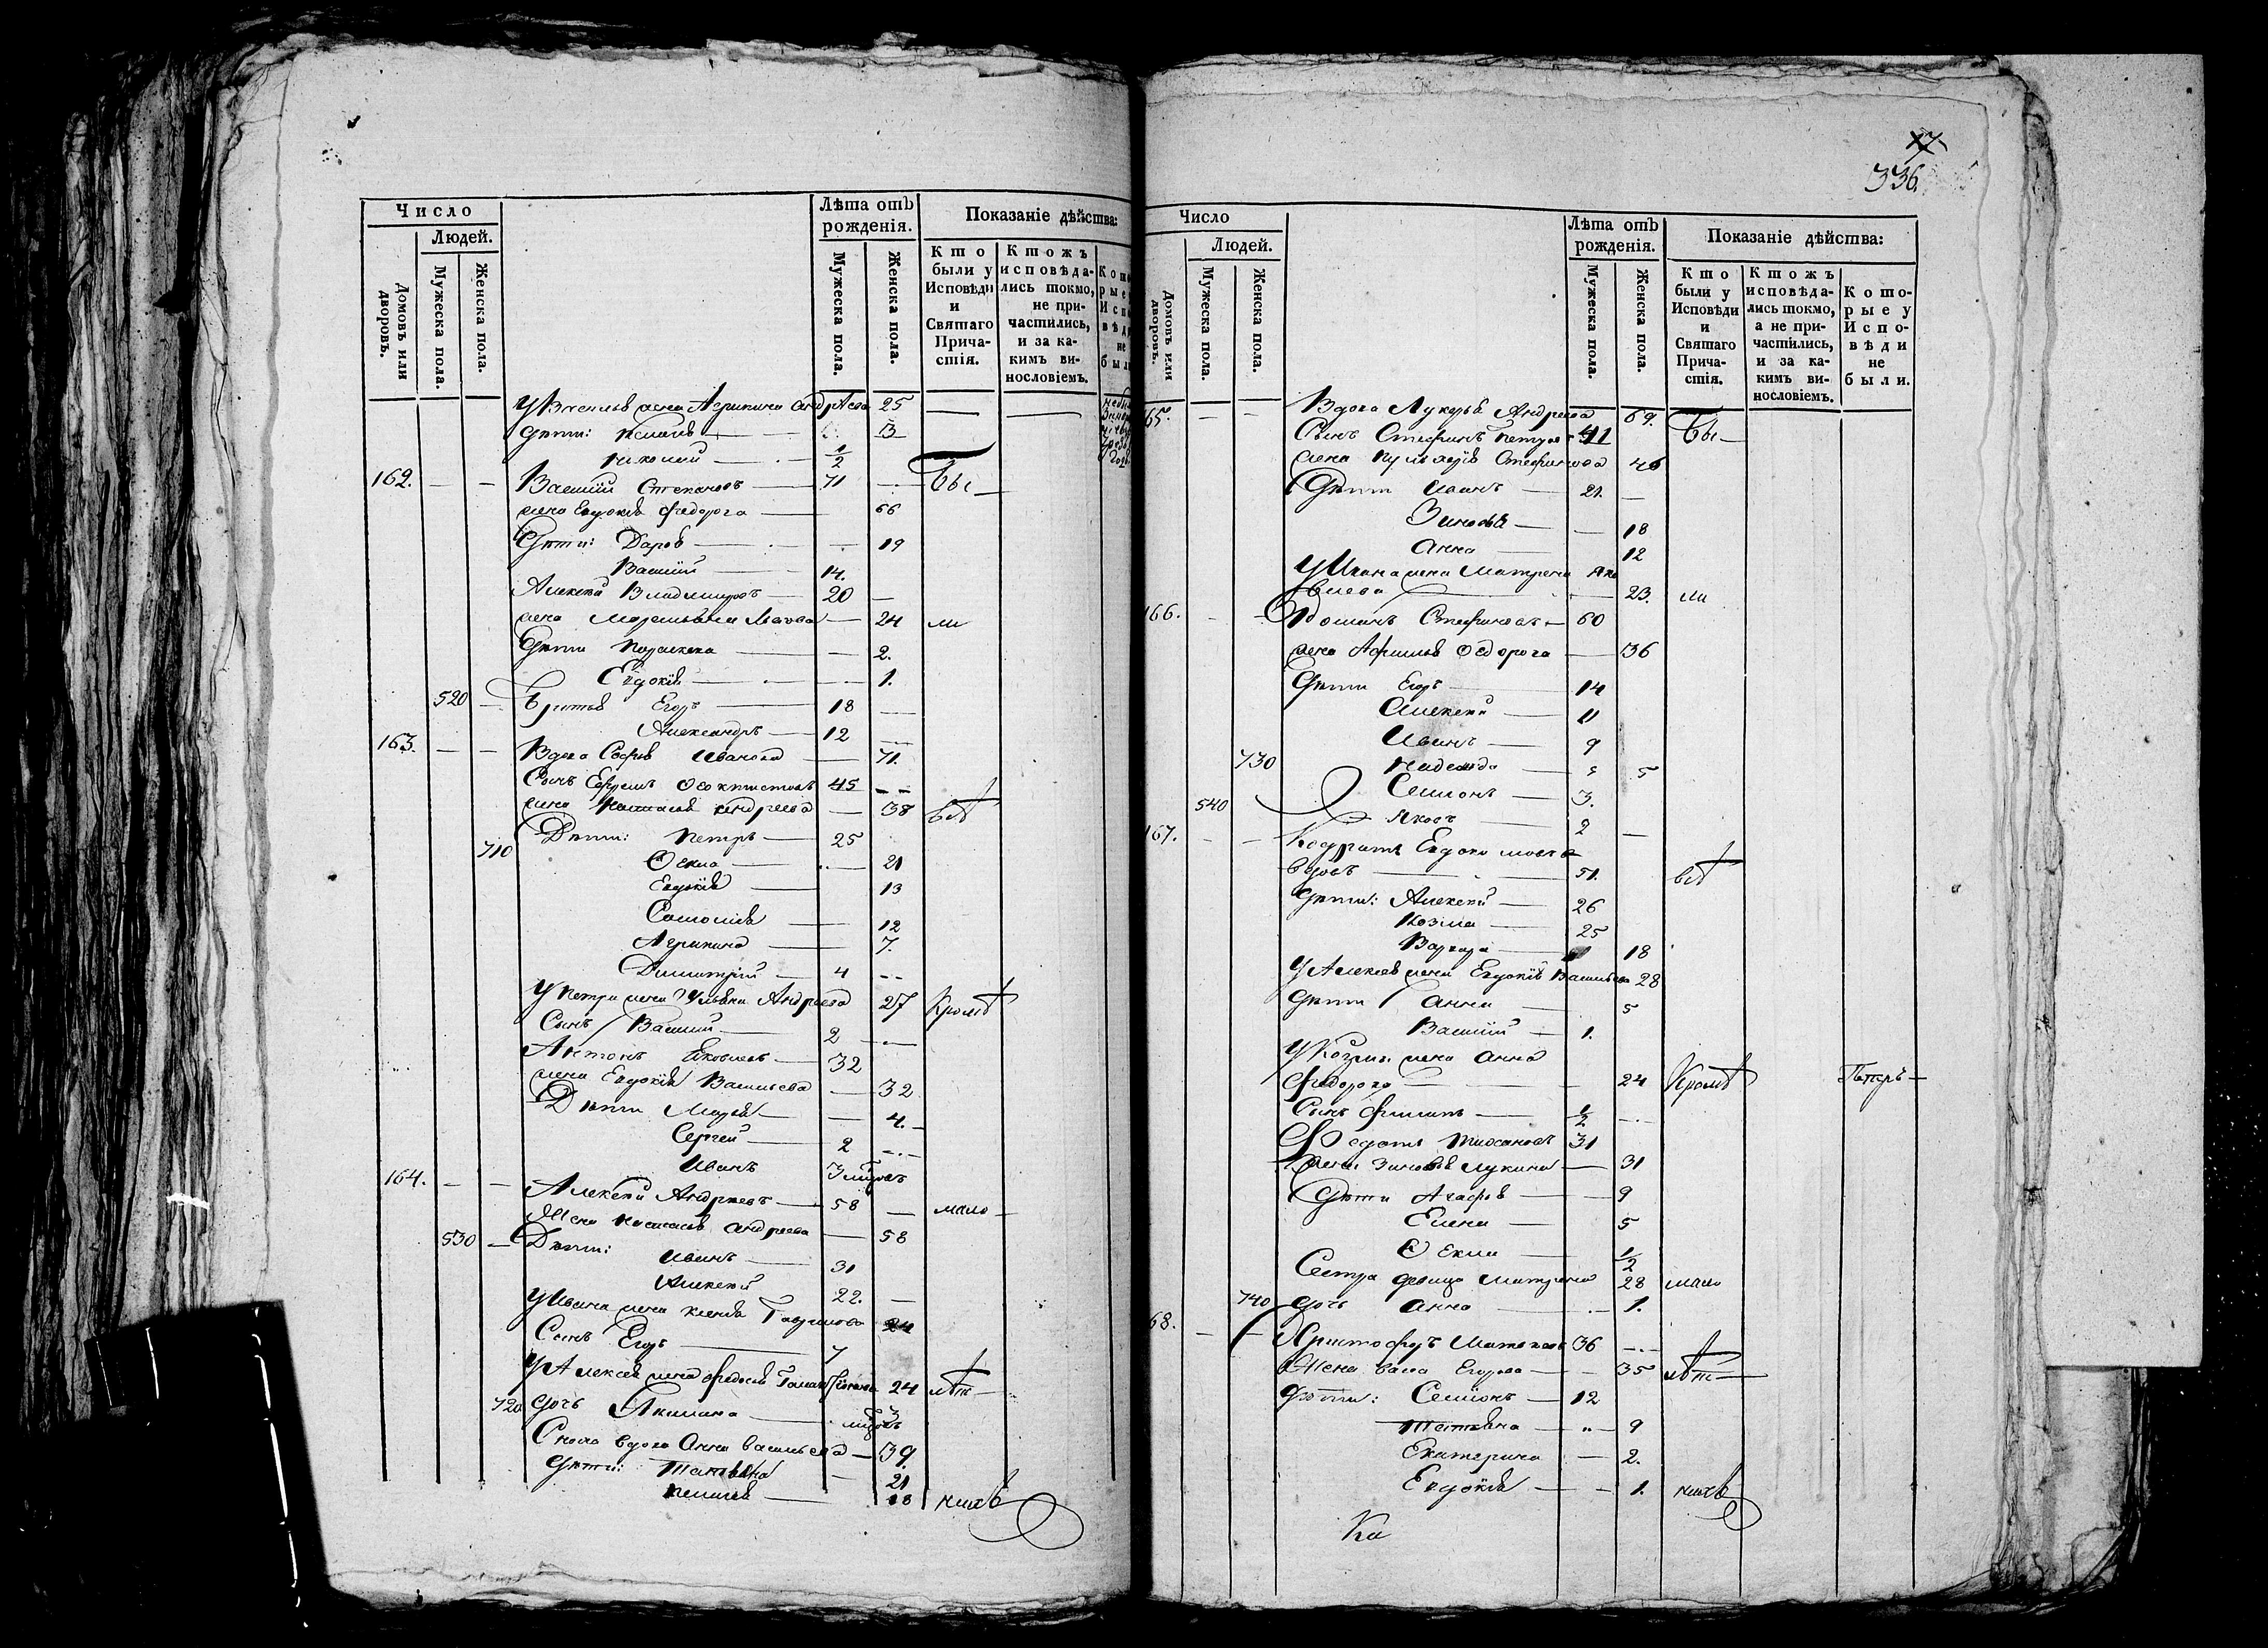 Число
Людей.
Домовъ или дворовъ.
Мужеска пола.
Женска пола.
Лѣта отъ рожденія.
Мужеска пола.
Женска пола.
Показаніе дѣйства:
Кто были у Исповѣди и Святаго Причастія.
Ктожъ исповѣдались токмо, не причастились, и за какимъ винословіемъ.
жена Агрипина Андрѣева 25
Дѣти: 3
Николай — 1/2
162. — — Василій Степановъ — 71 — Бы—
жена Евдокія Федорова — 66
Дѣти: Дарья — 19
Василій — 14.
Алексѣй Владимировъ — 20 —
жена — 24 ли
Дѣти Параскева — 2.
Евдокія — 1.
520 — Братья Егоръ — 18 —
Александръ — 12
163. — — Вдова Софья Иванова — 71.
Сынъ Ефремъ Феоктистовъ 45 —
жена Наталья Андреева — 38 всѣ
Дѣти: Петръ — 25
710 Фекла — 21
Евдокія — 13
Соломія — 12
Агрипина — 7.
Димитрій — 4 —
У Петра жена Ульяна Андреева 27 Кромѣ
Сынъ Василій — 2 —
Антонъ Яковлевъ — 32
жена Евдокія Васильева — 32
Дѣти Марья — 4.
Сергей — 2 —
Иванъ 3
164. — — Алексѣй Андреевъ — 58 — мало—
Жена Наталья Андреева — 58
530 — Дѣти: Иванъ — 31
Алексѣй 22. —
У Ивана жена Ксенія Гаврилова 24
Сынъ Егоръ — 7
У Алексѣя жена Федосья 24 лѣт—
720 Дочь Акилина — 3
Сноха вдова Анна Васильева — 39.
Дѣти: Татьяна — 21
Пелагея — 18 нихъ
336.
Число
Людей.
Домовъ или дворовъ.
Мужеска пола.
Женска пола.
Лѣта отъ рожденія.
Мужеска пола.
Женска пола.
Показаніе дѣйства:
Кто были у Исповѣди и Святаго Причастія.
Ктожъ исповѣдались токмо, а не причастились, и за какимъ винословіемъ.
Которые у Исповѣди не были.
65. — — Вдова Лукерья Андреева 69.
Сынъ Стефанъ Петровъ 41 Бы—
жена Стефанова 46
Дѣти Иванъ — 21. —
Зиновья — — 18
Анна — 12
У Ивана жена Матрена Яко
влева — 23. ли
166. — — Стефановъ — 60
жена Афимья Федорова — 36
Дѣти Егоръ — 14
Алексѣй — 11
Иванъ — 9
730 Надежда — 5
Семіонъ — 3.
540 Яковъ — 2 —
167. — — Кодратъ Евдокимовъ
вдовъ — 51. всѣ
Дѣти: Алексѣй — 26
Козма — 25
Варвара — 18
У Алексѣя жена Евдокія Васильева 28
Дѣти Анна — 5
Василій — 1.
У Козмы жена Анна
Федорова — 24 Кромѣ
Сынъ Филипъ — 1/2 —
Федотъ Тихоновъ 31
жена Зиновья Лукина — 31
Дѣти Агафья — 9
Елена — 5
Фекла — 1/2
Сестра девица Матрена 28 мало
740 Дочь Анна — 1.
68. — — Христофоръ 36 —
Жена Егорова — 35 лѣт—
Дѣти: Семіонъ — 12
Татьяна — 9
Екатерина — 2.
Евдокія — 1. нихъ
Ка